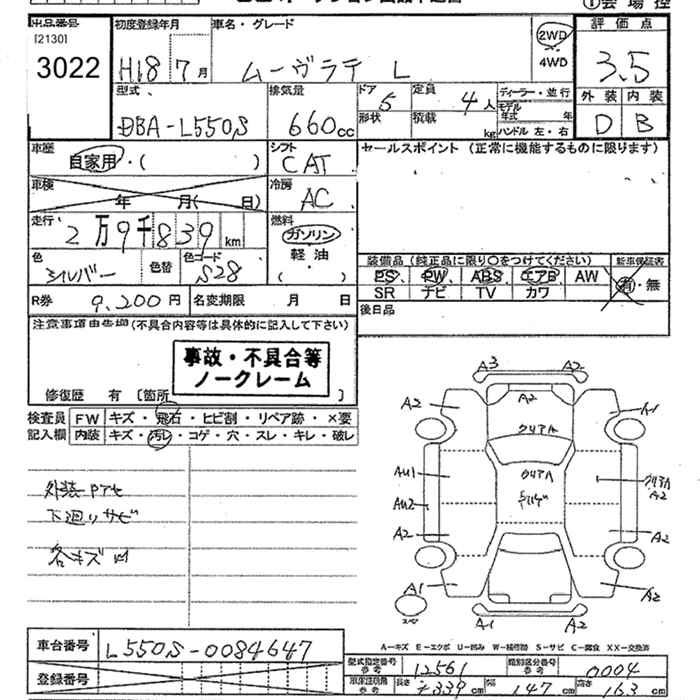 出品番号 初度登録年月 車名・グレード 評価点
[2130]
3022 H18 7月 ムーヴラテ L 2WD 3.5
4WD
型式 排気量 ドア 定員 ディーラー・並行 外装 内装
DBA-L550S 660cc 5 4人 モデル年式 年 D B
形状 積載 kg ハンドル 左・右
車歴 シフト セールスポイント (正常に機能するものに限ります)
自家用・( ) CAT
車検 冷房
年 月( 日) AC
走行 燃料
2万9千839km ガソリン
色 色替 色コード 軽油・
シルバー S28 ( )
装備品 (純正品に限り○をつけてください) 新車保証書
PS、PW、ABS、エアB、AW 有・無
SR ナビ TV カワ
R券 9,200円 名変期限 月 日 後日品
注意事項申告欄(不具合内容等は具体的に記入して下さい)
事故・不具合等
ノークレーム
修復歴 有 [箇所 ]
検査員 FW キズ・飛石・ヒビ割・リペア跡・×要
記入欄 内装 キズ・汚レ・コゲ・穴・スレ・キレ・破レ
下廻りサビ
各キズ
A3 A2
A2 A2 A1
クリアA
AU1 クリアA クリアA
A2
AU2
A2 A2
A1 A2
A1 A2
A-キズ E-エクボ U-凹み W-補修跡 S-サビ C-腐食 XX-交換済
車台番号 L550S-0084647
型式指定番号 12561 類別区分番号 0004
登録番号 長さ 339cm 幅 147cm 高さ 163cm